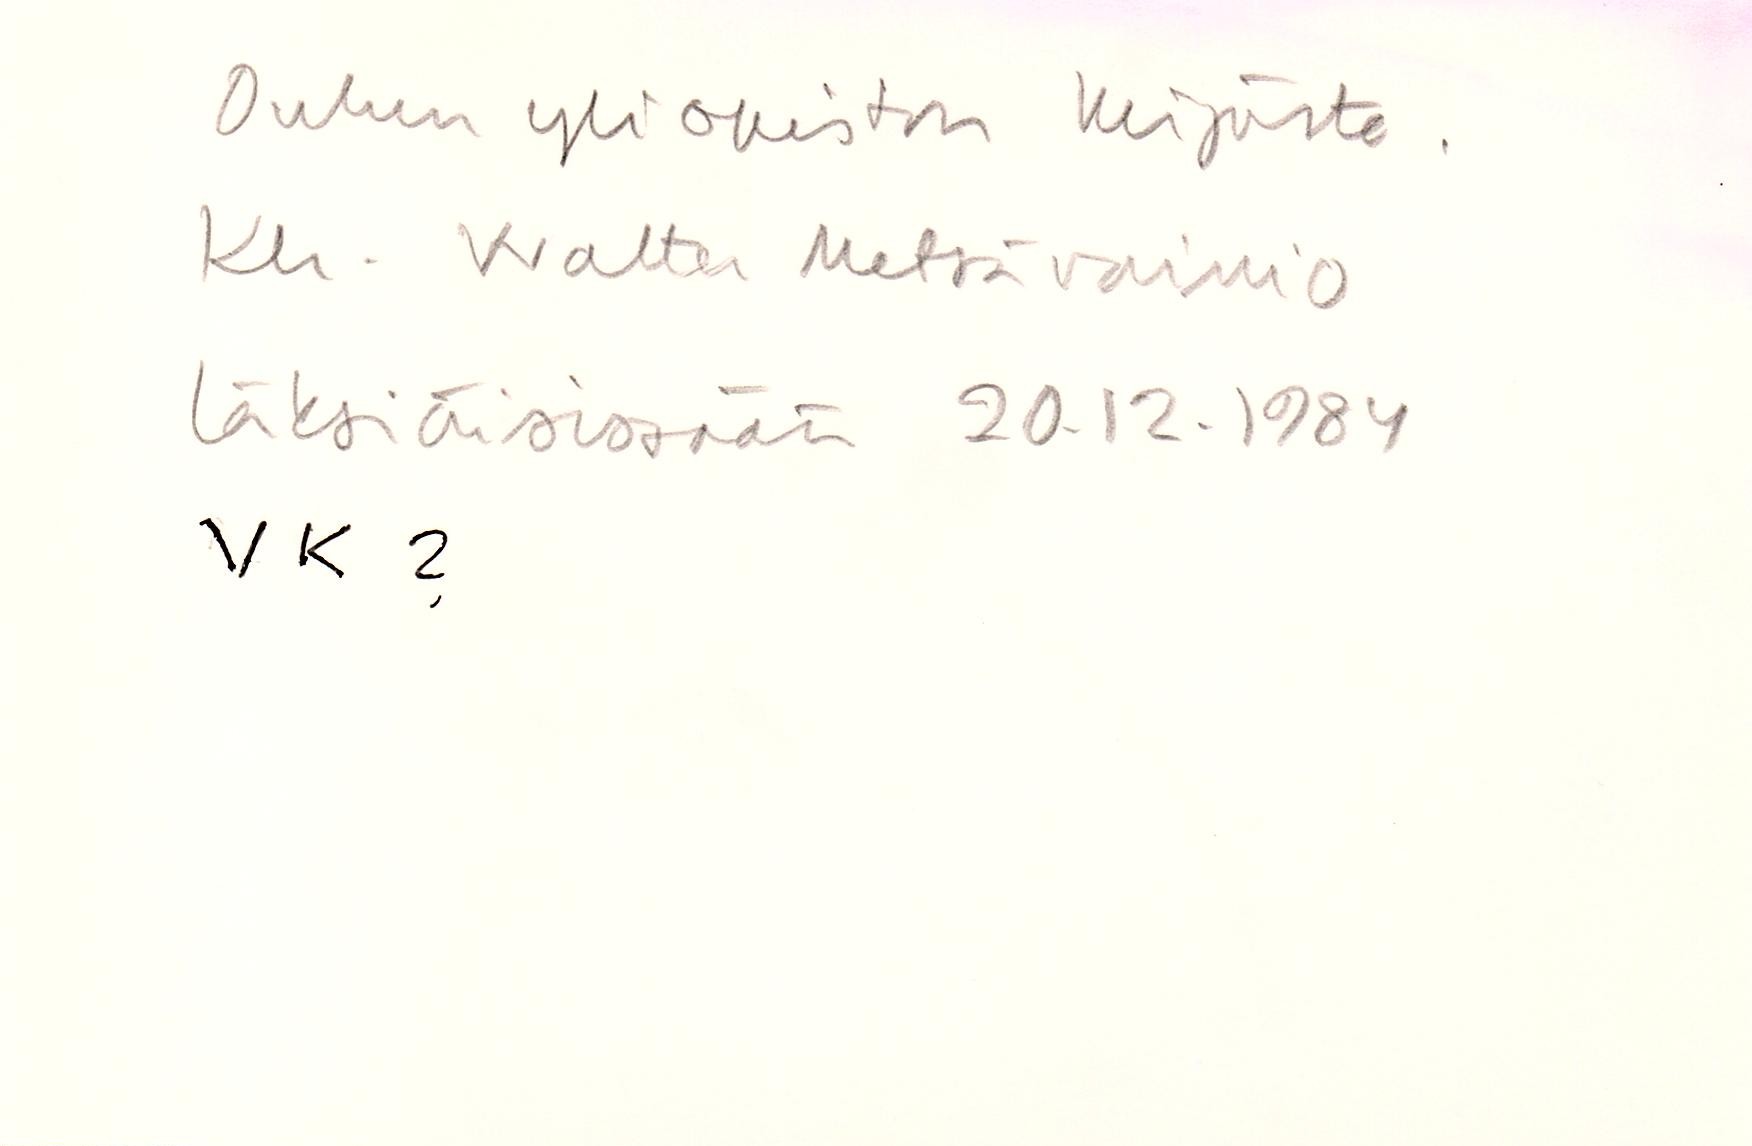 Oulun yliopiston kirjasto.
Klr. Walter Metsävainio
läksiäisissään 20.12.1984
VK ?